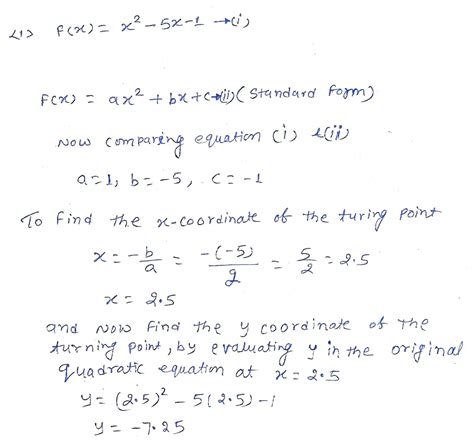 <1> F(x) = x² - 5x - 1 → (i)
F(x) = ax² + bx + c → (ii) (Standard Form)
Now comparing equation (i) & (ii)
a = 1, b = -5, c = -1
To find the x-coordinate of the turing point
x = -b/a = -(-5)/2 = 5/2 = 2.5
x = 2.5
and Now Find the y coordinate of the
turning point, by evaluating y in the original
quadratic equation at x = 2.5
y = (2.5)² - 5(2.5) - 1
y = -7.25